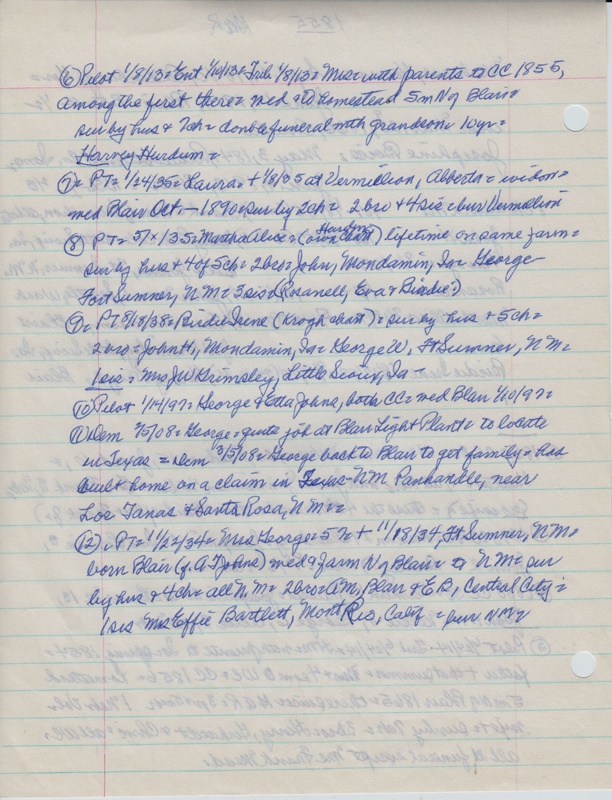 ⑥ Pilot 1/8/13 = Ent 1/10/13 = Trib 1/8/13 = Mrs = with parents to CC 1855,
among the first there = med & to homestead 5m N of Blair =
sur by hus & 7ch = double funeral with grandson = 10yr =
Harvey Hurdum =
⑦ = PT = 1/24/35 = Laura = + 1/8/35 at Vermillion, Alberta = widow =
med Blair Oct. — 1890 = sur by 2ch = 2bro & 4sis = bur Vermillion
⑧ PT = 5/ /35 = Martha Alice = (own chart) lifetime on same farm =
sur by hus & 4 of 5ch = 2bro = John, Mondamin, Ia = George
Fort Sumner, NM = 3sis = (Rosanell, Eva & Birdie)
9 = PT 8/18/38 = Birdie Irene (Krogh chart) = sur by hus & 5ch =
2bro = John H, Mondamin, Ia = George W, Ft Sumner, NM =
1sis = Mrs JW Grimsley, Little Sioux, Ia —
⑩ Pilot 1/14/97 = George & Etta Johns, both CC = med Blair 1/10/97 =
⑪ Dem /5/08 = George = quits job at Blair Light Plant = to locate
in Texas = Dem 3/5/08 = George back to Blair to get family = has
built home on a claim in Texas-NM Panhandle, near
Los Tanas & Santa Rosa, NM =
⑫ PT = 11/22/34 = Mrs George = 5 + 11/18/34, Ft Sumner, NM =
born Blair (f. A T Johns) med & farm N of Blair = to NM = sur
by hus & 4ch = all NM = 2bro = AM, Blair & EB, Central City =
1sis Mrs Effie Bartlett, Mont Rio, Calif = bur NM =